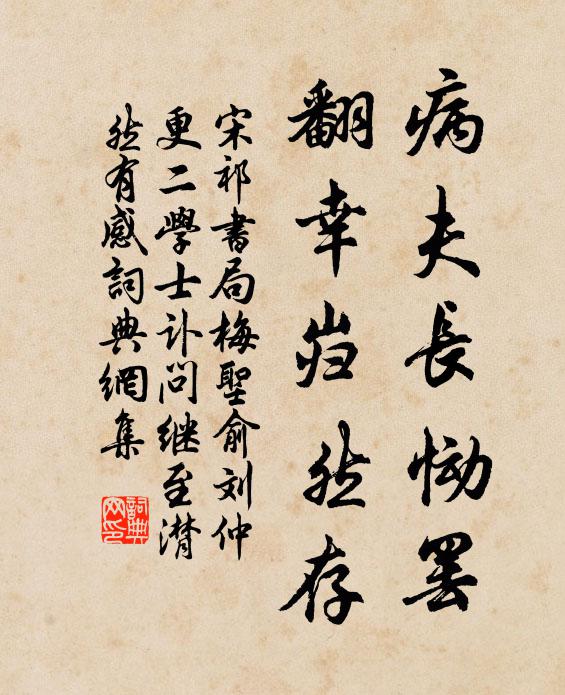 病夫长恸罢
翻幸岿然存
宋祁书局梅聖俞刘仲
更二學士讣问继至潸
然有感詞典網集
詞典
网印